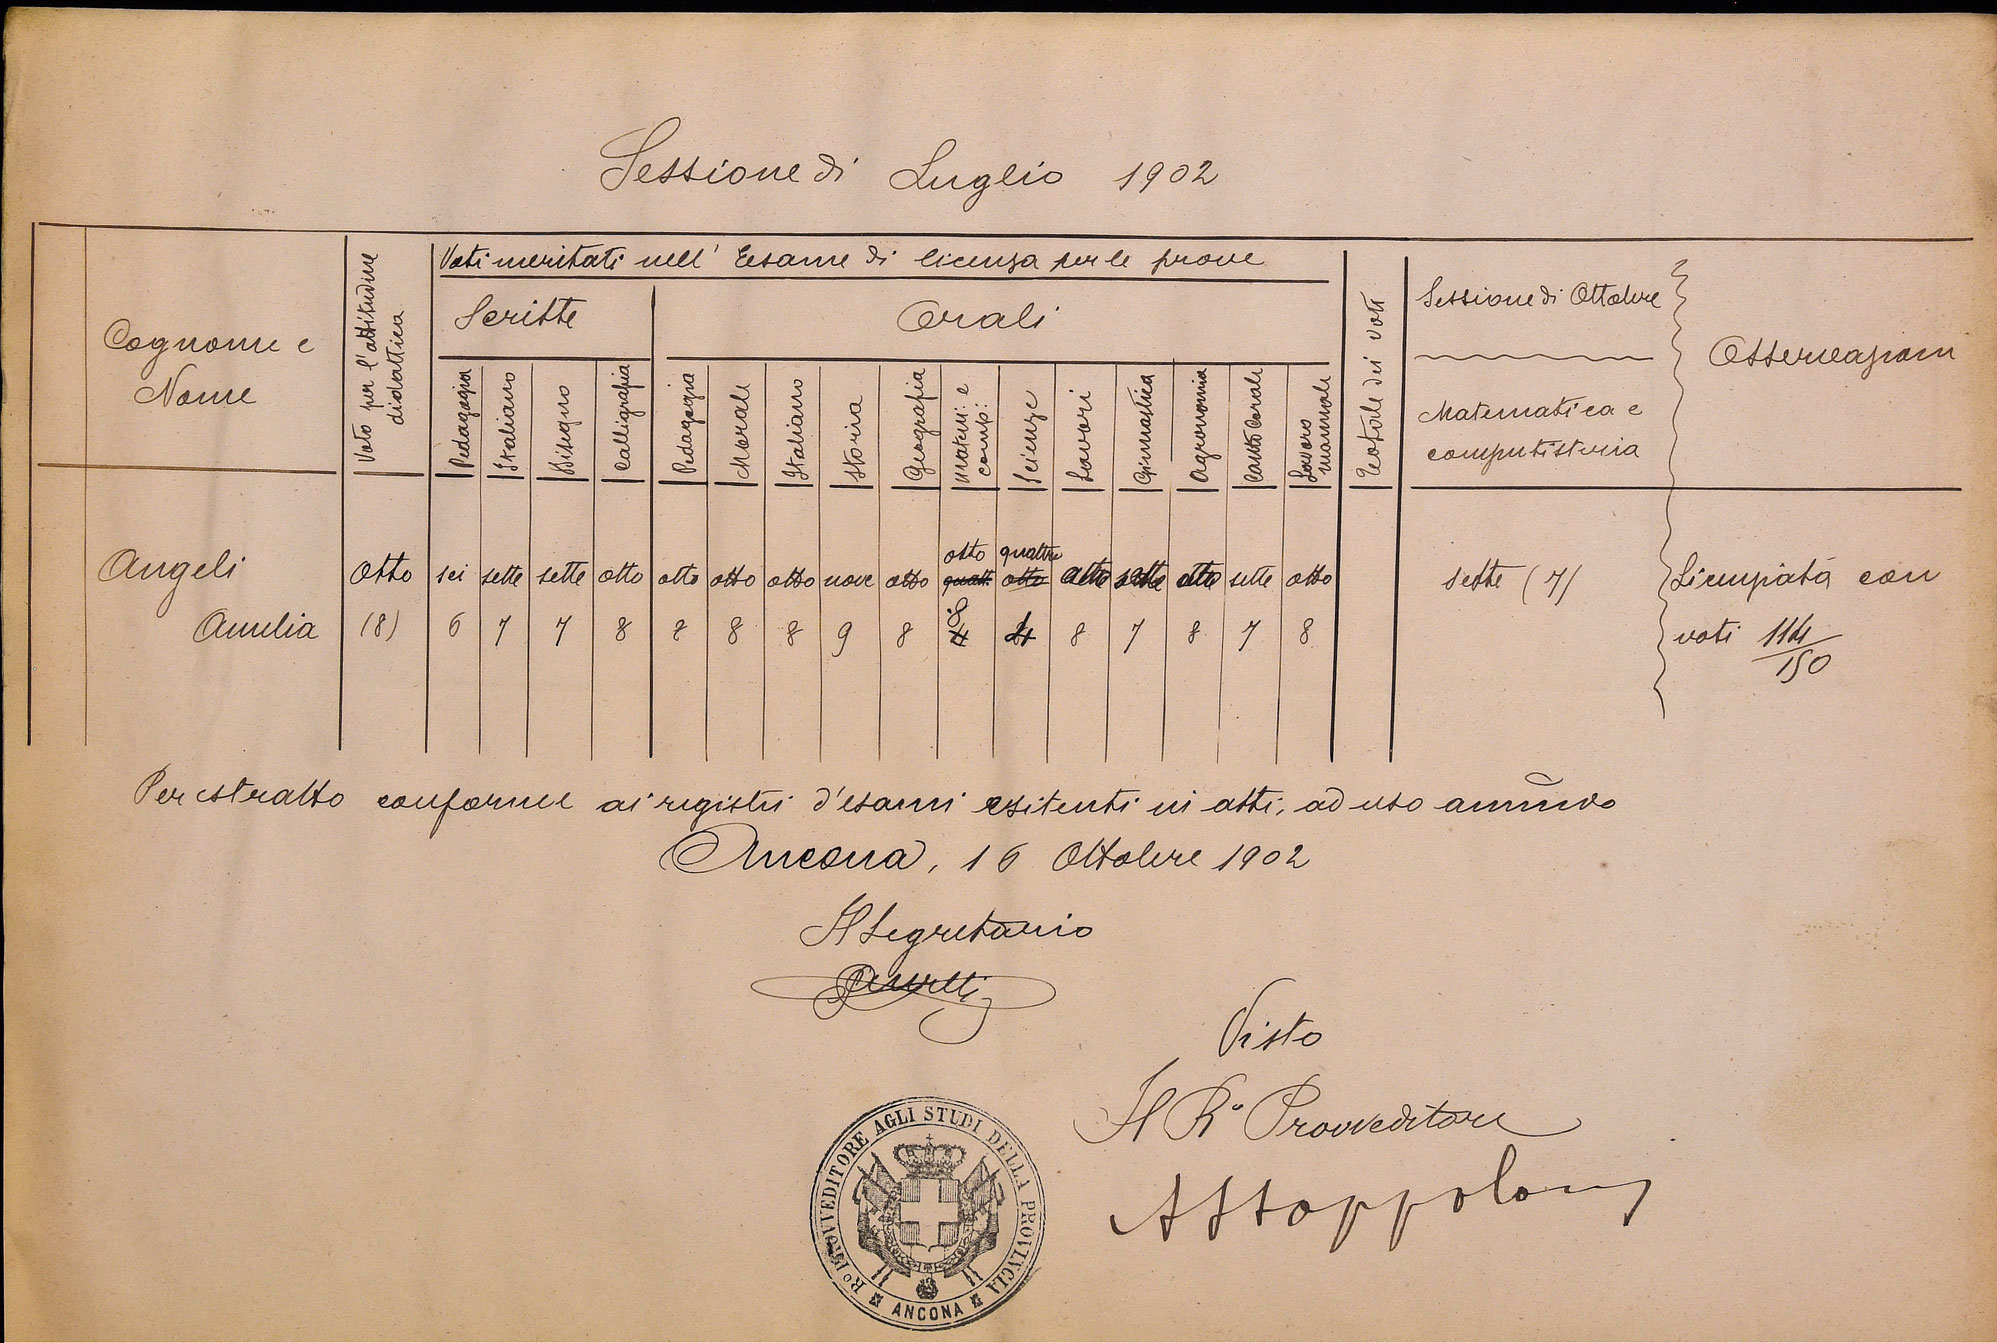 Sessione di Luglio 1902
Cognome e
Nome
Voto per l'attitudine
didattica
Voti meritati nell' Esame di licenza per le prove
Scritte
Orali
Pedagogia
Italiano
Disegno
Calligrafia
Pedagogia
Morale
Italiano
Storia
Geografia
Matem: e
comp:
Scienze
Lavori
Ginnastica
Agronomia
Canto Corale
Lavoro
manuale
Totale dei voti
Sessione di Ottobre
Matematica e
computisteria
Osservazioni
otto quattro
Angeli otto sei sette sette otto otto otto otto nove otto quatt. otto otto sette otto sette otto sette (7) Licenziata con
Amelia (8) 6 7 7 8 8 8 8 9 8 8 4 4 8 7 8 7 8 voti 114/150
Per estratto conforme ai registri d'esami esitenti in atti, ad uso amm̃vo
Ancona, 16 Ottobre 1902
Il Segretario
Visto
Il R.° Provveditore
R.° PROVVEDITORE AGLI STUDI DELLA PROVINCIA
ANCONA